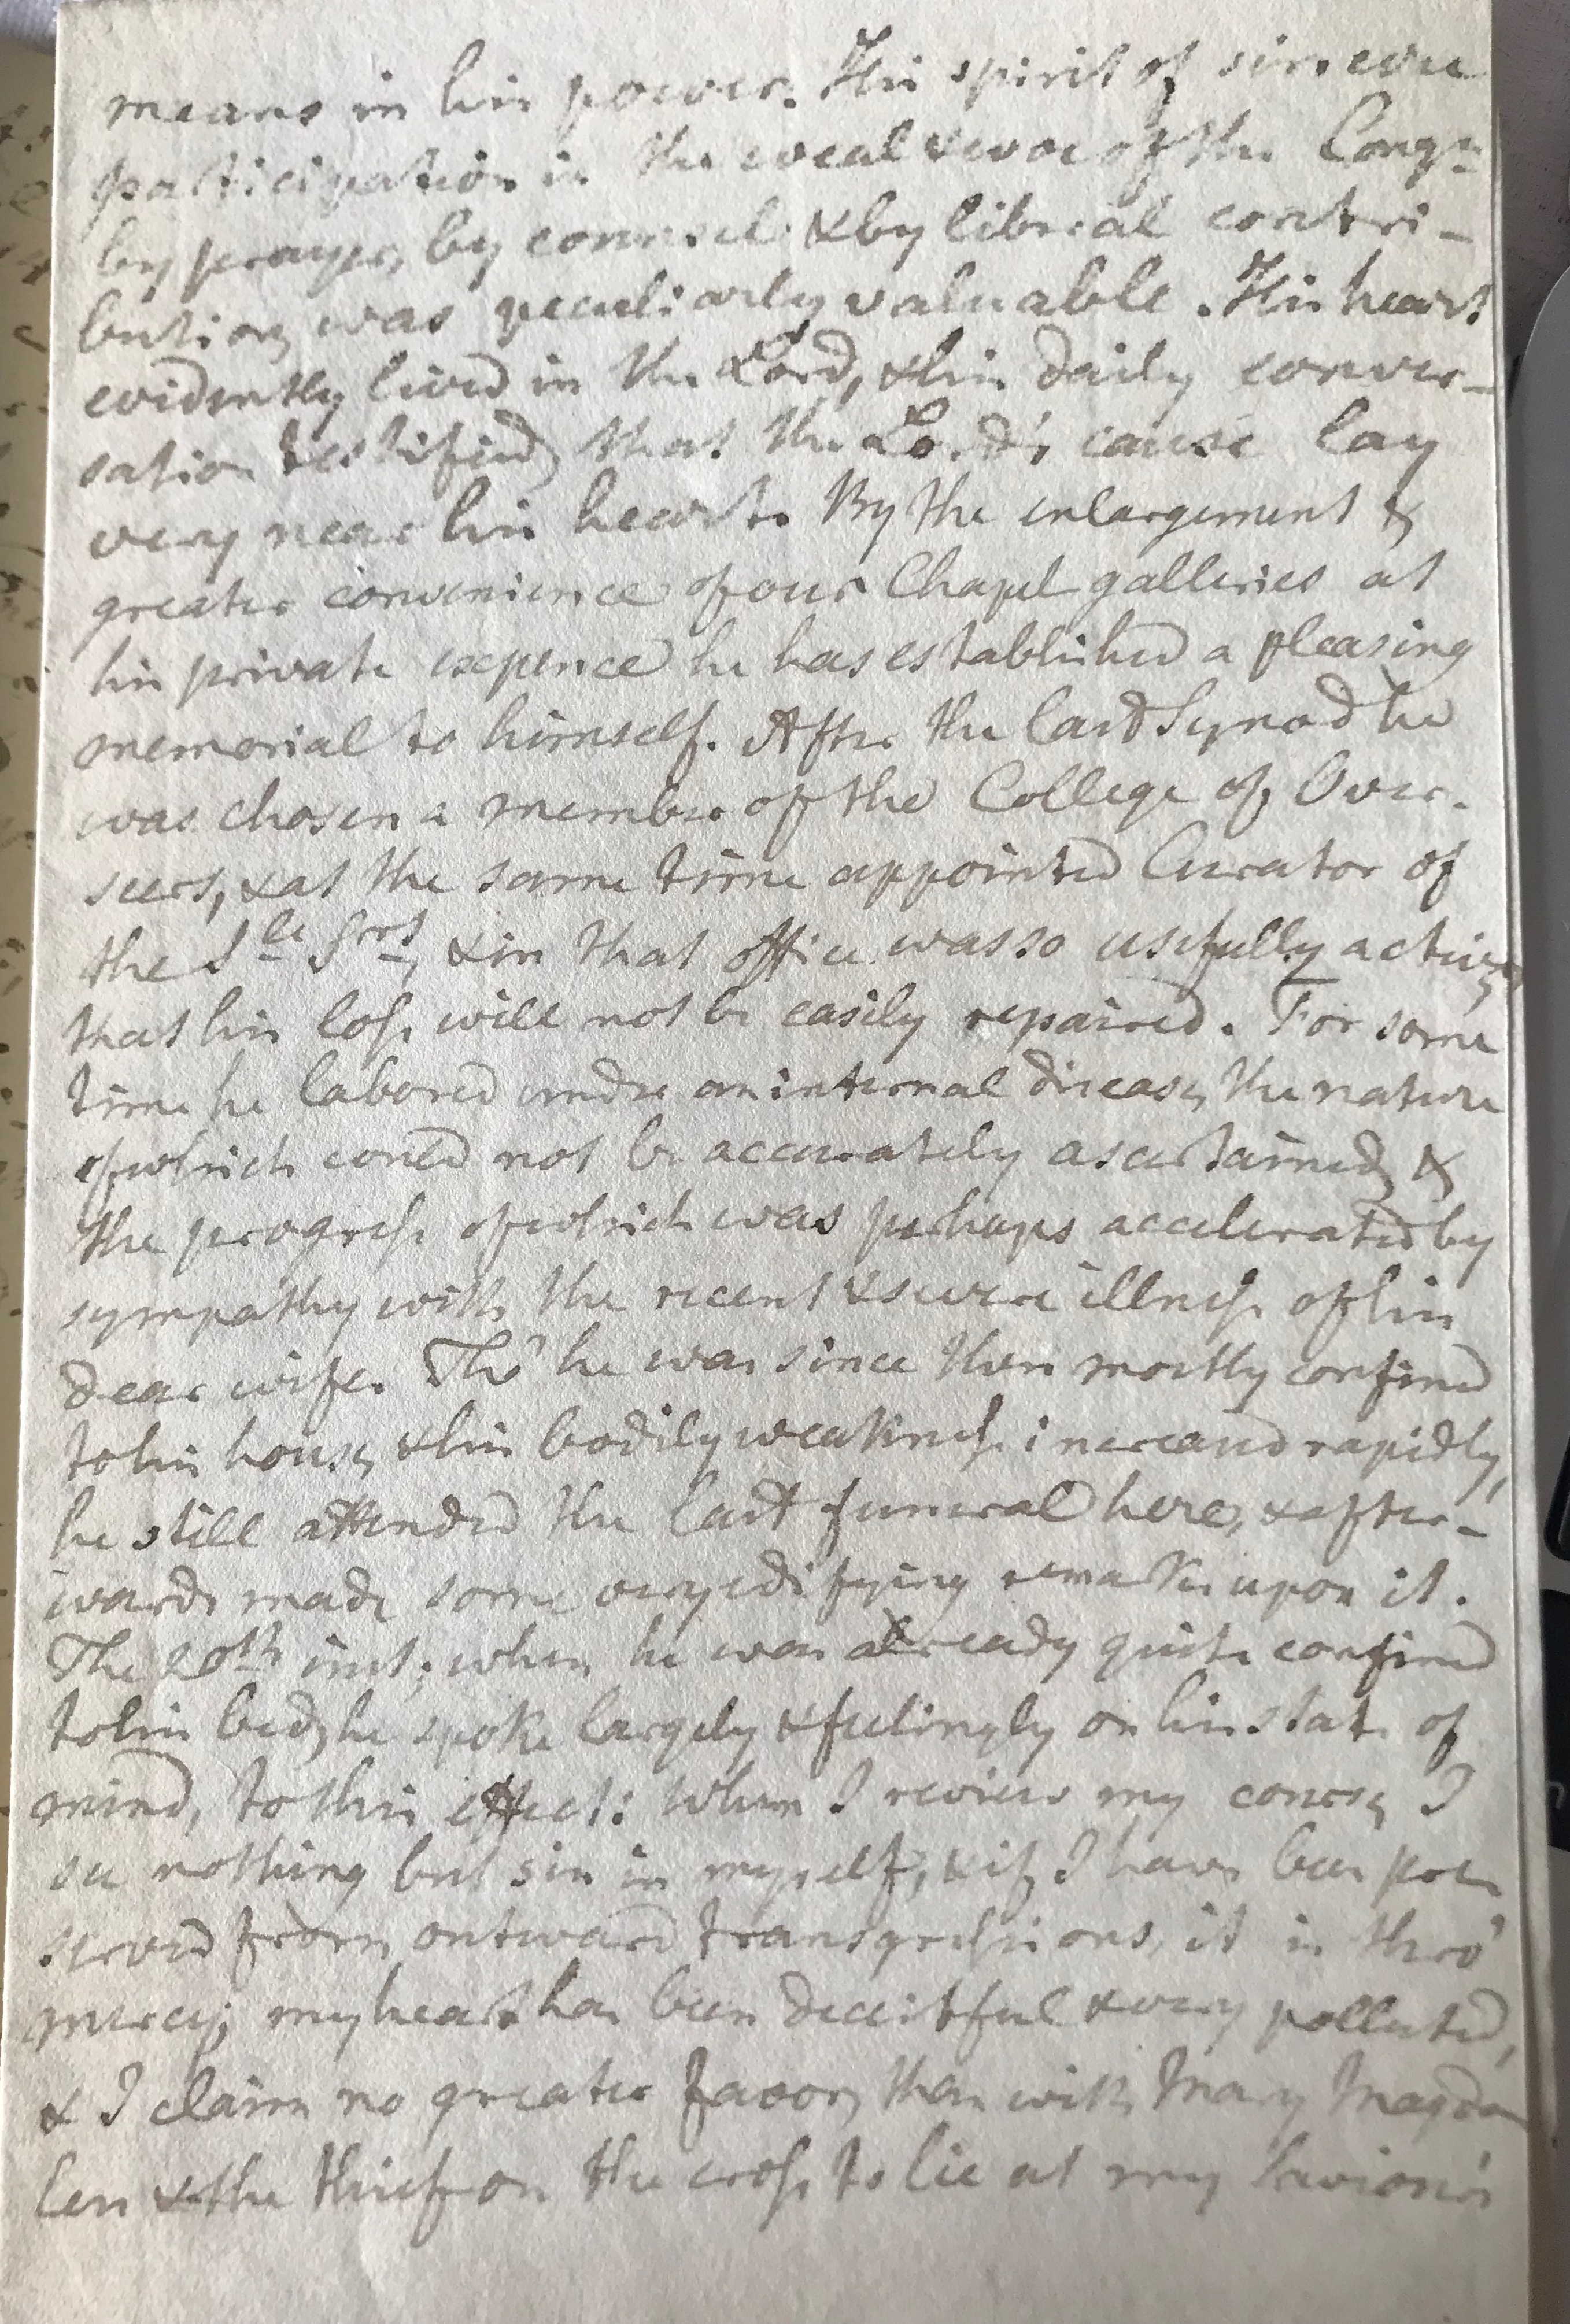 means in his power. His spirit of sincere
participation in the weal & woe of the Congn
by prayer, by counsel & by liberal contri-
bution, was peculiarly valuable. His heart
evidently lived in the Lord, & his daily conver-
sation testified, that the Lord's cause lay
very near his heart. By the enlargement &
greater convenience of our Chapel galleries at
his private expence he has established a pleasing
memorial to himself. After the last Synod he
was chosen a member of the College of Over-
seers, & at the same time appointed Curator of
the Sle Srs, & in that office was so usefully active,
that his loss will not be easily repaired. For some
time he labored under an internal disease, the nature
of which could not be accurately ascertained, &
the progress of which was perhaps accelerated by
sympathy with the recent & severe illness of his
dear wife. Tho' he was since then mostly confined
to his house, & his bodily weakness increased rapidly,
he still attended the last funeral here, & after-
wards made some very edifying remarks upon it.
The 20th inst; when he was already quite confined
to his bed, he spoke largely & feelingly on his state of
mind, to this effect: When I review my course, I
see nothing but sin in myself, & if I have been pre
served from outward transgressions, it is thro'
mercy; my heart has been deceitful & very polluted,
& I claim no greater favor, than with Mary Magda
len & the thief on the cross to lie at my Saviour's